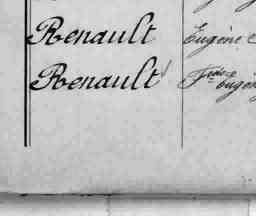 Renault Eugène
Renault Fçois Eugèn